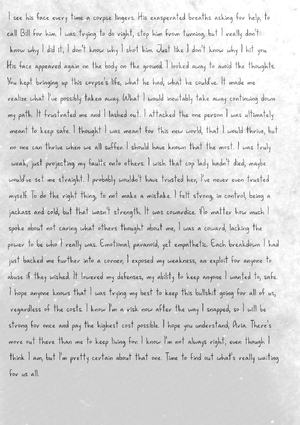 I see his face every time a corpse lingers. His exasperated breaths asking for help, to
call Bill for him. I was trying to do right, stop him from turning, but I really don't
know why I did it, I don't know why I shot him. Just like I don't know why I hit you.
His face appeared again on the body on the ground. I looked away to avoid the thoughts.
You kept bringing up this corpse's life, what he had, what he could've. It made me
realize what I've possibly taken away. What I would inevitably take away continuing down
my path. It frustrated me and I lashed out. I attacked the one person I was ultimately
meant to keep safe. I thought I was meant for this new world, that I would thrive, but
no one can thrive when we all suffer. I should have known that the most. I was truly
weak, just projecting my faults onto others. I wish that cop lady hadn't died, maybe
would've set me straight. I probably wouldn't have trusted her, I've never even trusted
myself. To do the right thing, to not make a mistake. I felt strong, in control, being a
jackass and cold, but that wasn't strength. It was cowardice. No matter how much I
spoke about not caring what others thought about me, I was a coward, lacking the
power to be who I really was. Emotional, paranoid, yet empathetic. Each breakdown I had
just backed me further into a corner, I exposed my weakness, an exploit for anyone to
abuse if they wished. It lowered my defenses, my ability to keep anyone I wanted to, safe.
I hope anyone knows that I was trying my best to keep this bullshit going for all of us,
regardless of the costs. I know I'm a risk now after the way I snapped, so I will be
strong for once and pay the highest cost possible. I hope you understand, Aria. There's
more out there than me to keep living for. I know I'm not always right, even though I
think I am, but I'm pretty certain about that one. Time to find out what's really waiting
for us all.